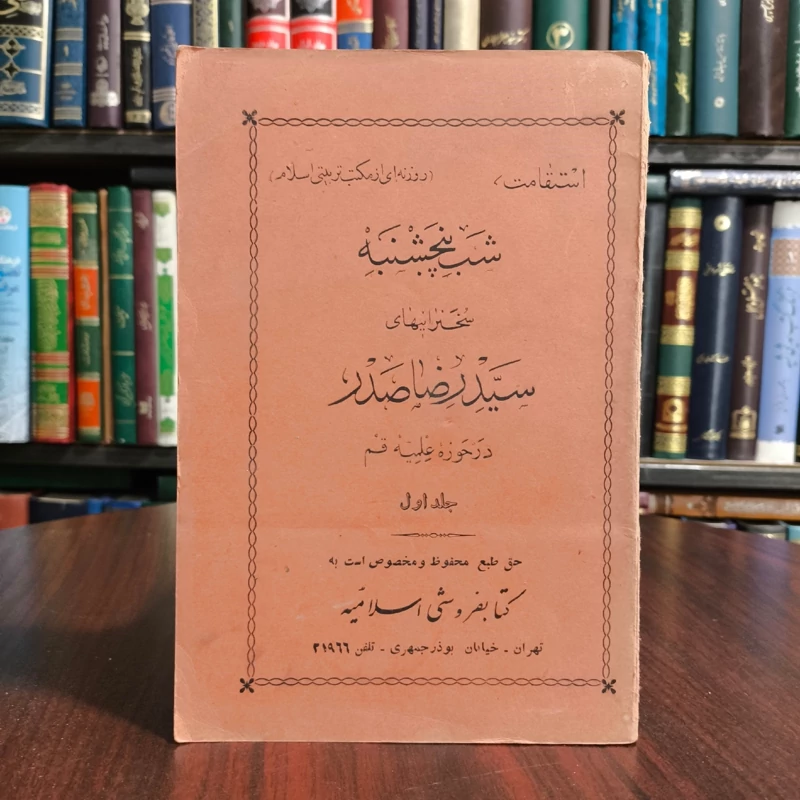 استقامت (روزنه‌ای از مکتب تربیتی اسلام)
شَب پَنجشَنبَه
سُخَنرانیهای
سَیِّد رِضا صَدر
دَر حَوزه عِلمیه قم
جلد اول
حق طبع محفوظ و مخصوص است به
کتابفروشی اسلامیّه
تهران - خیابان بوذرجمهری - تلفن ۲۱۹۶۶